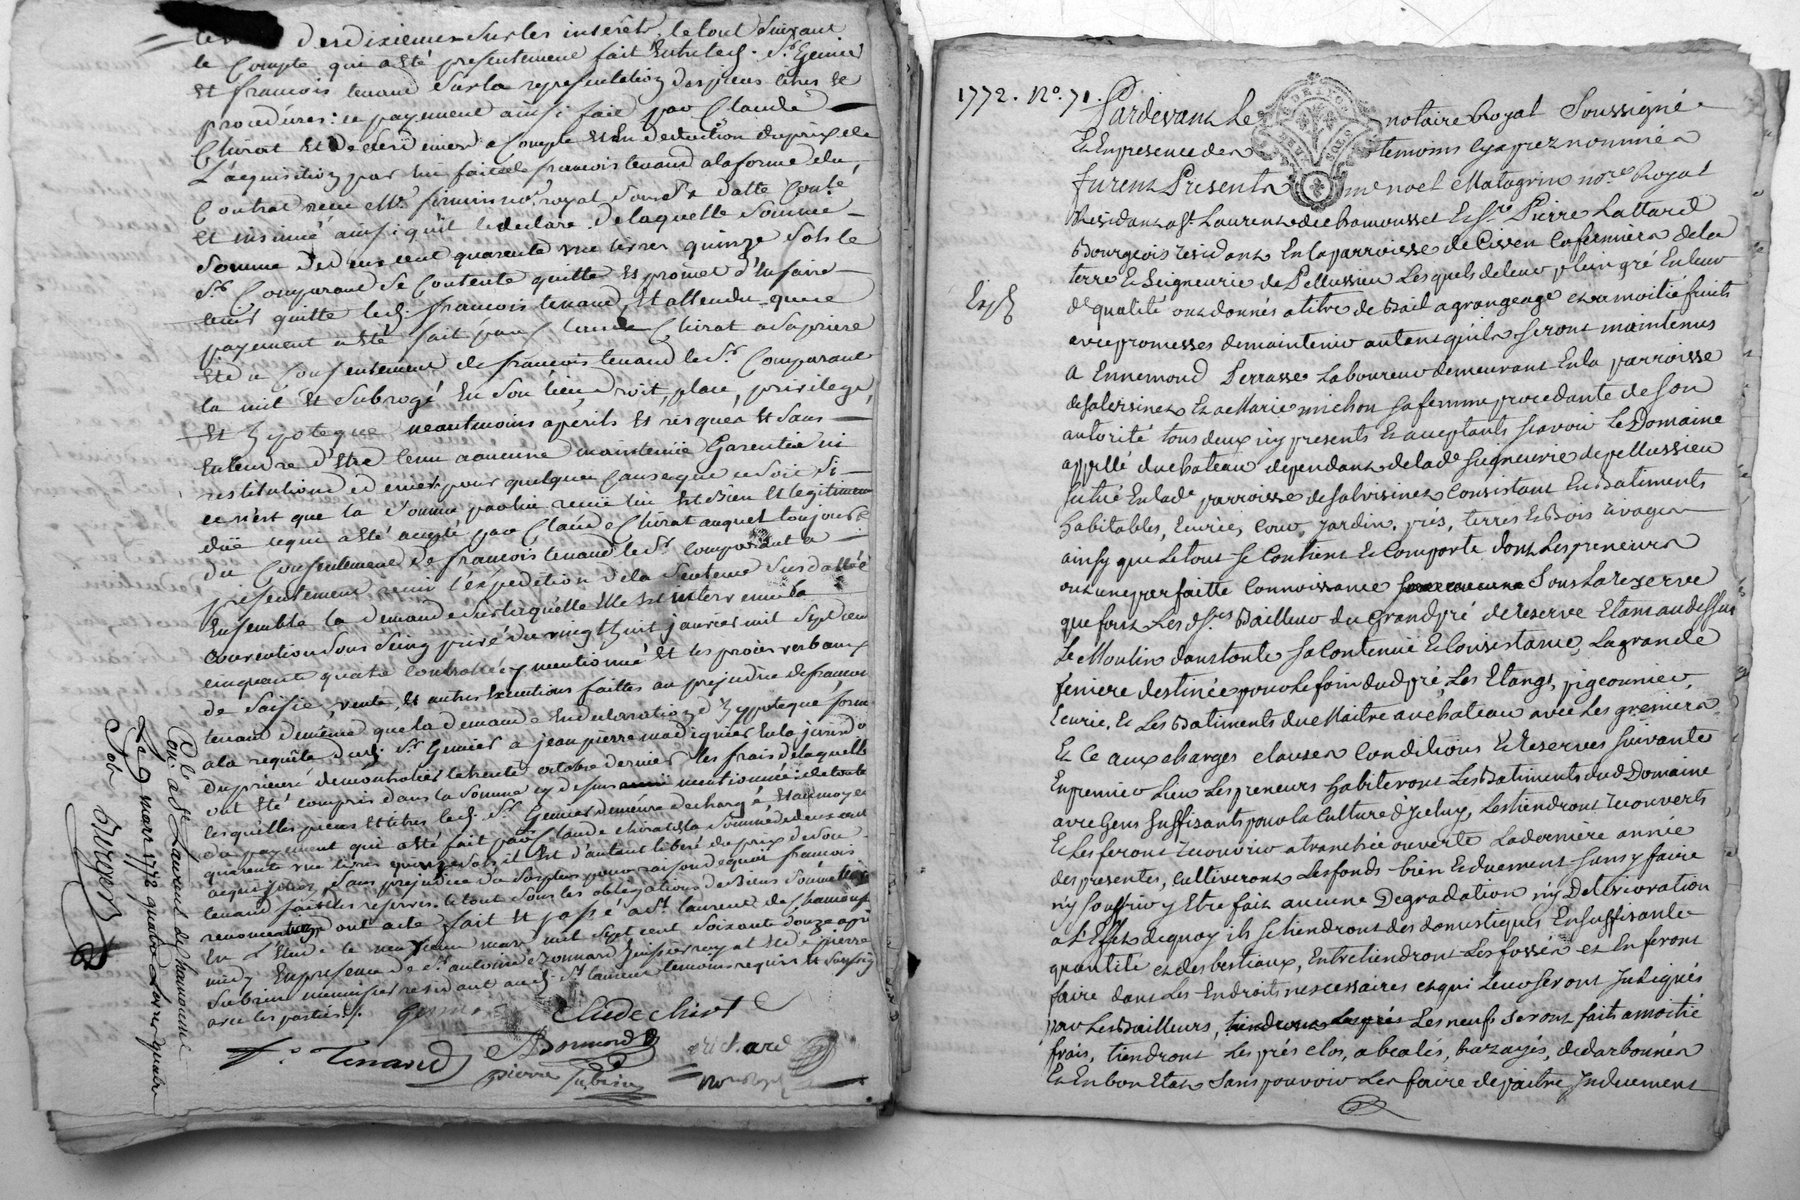 des dixiemes sur les interêts, le tout suivant
le Compte qui a été presentement fait Entre led. Sr. Genier
Et francois tenaud sur la representation des pieces titres et
procédures: ce payement ainsi fait par Claude
Chirat Et de ses deniers a Compte et En deduction du prix de
L'acquisition par lui faite de francois tenaud a la forme du
Contrat recu Me. simin no.re royal
Et insinué ainsi qu'il le declare, de laquelle somme
somme de deux cent quarente une livres quinze sols le
Sr. Comparant se Contente quitte Et promet d'En faire
tenir quitte led. francois tenaud, Et attendu que ce
payement a été fait par Claude Chirat a la priere
Et du Consentement de francois tenaud le Sr. Comparant
la mit Et subrogé En son lieu, droit, place, privilege,
Et hypoteque neantmoins a perils Et risques Et sans
Entendre d'Etre tenu a aucune maintenüe Garentie ni
restitution de deniers pour quelque Cause que ce soit si
ce n'est que la somme par lui recüe lui Est Bien Et legitimement
düe ce qui a été accepté par Claude Chirat auquel toujours
du Consentement de francois tenaud le Sr. Comparant a
presentement remis l'expedition de la sentence susdattée
Ensemble la demande sur laquelle Elle Est intervenue la
Convention sous seing privé du vingt huit janvier mil sept cent
cinquante quatre Controllée y mentionnée Et les procès verbaux
de saisie, vente, Et autres Executions faittes au prejudice de francois
tenaud de même que la demande En declaration d'hypoteque form.
a la requête dud. Sr. Genier a jean pierre madignier En la jurisd.
du prieuré de montrotier le trente octobre dernier, les frais de laquelle
ont été compris dans la somme cy dessus mentionnée: de toutes
lesquelles pieces Et titres led. Sr. Genier demeure dechargé, Et au moyen
du payement qui a été fait par Claude Chirat de la somme de deux cent
quarente une livres quinze sols il Est d'autant liberé du prix de son
acquisition, sans prejudice du surplus pour raison de quoi francois
tenaud fait les reserves. le tout sous les obligations de Biens soumissions
renonciations dont acte fait Et passé a St. laurent de Chamousset
En L'Etude le neuvieme mars mil sept cent soixante douze apri
midy En presence de Sr. antoine Bonnard huissier royal Et de pierre
Subrin menuisier residants aud. St. laurent temoins requis Et soussignés
avec les parties.
Genier Claude Chirat
fs. Tenaud ABonnard Richard
pierre Subrin no.re Royal
Con.lé a St Laurent de chamousset
Le 9 mars 1772 quatre Livres quatre
Sols
1772. No. 71.
Pardevant Le notaire Royal Soussigné
Et En presence des temoins cy aprez nommés
furent Presents me noel Matagrin no.re Royal
Residant a St. Laurent de chamousset Et Sr. Pierre Lattard
Bourgeois residant En la parroisse de Civen Cofermiers de la
terre Et Seigneurie de Pellussieu Lesquels de leur plein gré En leur
de. qualité ont donnés a titre de Bail a grangeage et a moitié fruits
avec promesses de maintenir autant qu'ils seront maintenus
A Ennemond Perrasse Laboureur demeurant En la parroisse
de salvisinet Et a Marie michon sa femme procedante de son
autorité tous deux icy presents Et acceptants scavoir Le Domaine
appellé du chateau dependant de lade. seigneurie de pellussieu
situé En lade. parroisse de salvisinet Consistant En Batiments
habitables, Ecurie, Cour, Jardin, prés, terres Et Bois rivages
ainsy que Le tout se Contient Et Comporte dont Les preneurs
ont une parfaitte Connoissance sans aucune Sous La reserve
que font Les d. Srs. Bailleurs du Grand pré de reserve Etant au dessus
Le Moulin dans toute sa Contenüe Et Consistance, La grande
feniere destinée pour Le foin dud. pré, Les Etangs, pigeonnier,
Ecurie, Et Les Batiments du Maitre au chateau avec Les greniers
Et Ce aux charges clauses Conditions Et reserves suivantes
En premier Lieu Les preneurs habiteront Les Batiments dud. Domaine
avec Gens suffisants pour la Culture d'Iceluy, Les tiendront recouverts
Et Les feront recouvrir a tranchée ouverte La derniere année
des presentes, Cultiveront Les fonds bien Et duement sans y faire
ny Souffrir y Etre fait aucune Degradation ny Deterioration
a L'Effet de quoy ils se tiendront des domestiques En suffisante
quantité et des bestiaux, Entretiendront Les fossés et En feront
faire dans Les Endroits nescessaires et qui Leur seront Indiqués
par Les Bailleurs, tiendront Les prés Les neufs seront faits a moitié
frais, tiendront Les prés clos, abealés, bazagés, dedarbonnés
Et En bon Etat sans pouvoir Les faire depaitre Induement